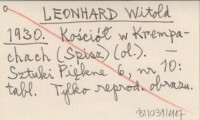 LEONHARD Witold
1930. Kościół w Krempa-
chach (Spisz) (ol.). —
Sztuki Piękne 6, nr 10:
tabl. Tylko reprod. obrazu.